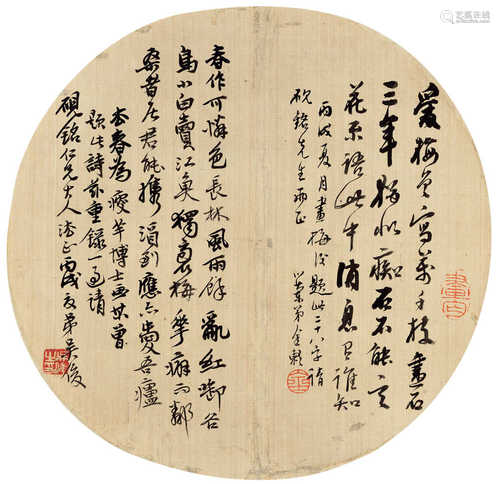 愛梅曾寫萬千枝畫石
三年猶似癡石不能言
花不語此中消息誰知
丙戌夏月畫梅後題此二十八字請
硯銘先生兩正 弟金
春作可憐色長林風雨餘亂紅啼谷
鳥小白賣江魚獨裹梅華癖而鄰
桑者居君能攜酒到應亦愛吾廬
本春為瘦羊博士畫其曾
題此詩茲重錄一過請
硯銘仁兄大人法正 丙戌夏弟吳俊